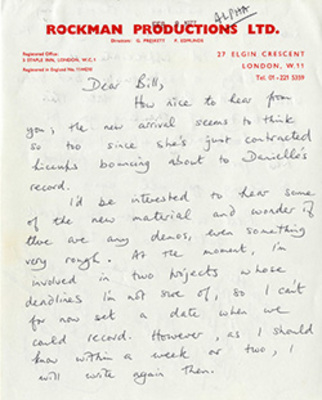 ALPHA
ROCKMAN PRODUCTIONS LTD.
Directors: G. PRESKETT P. EDMUNDS
Registered Office:
5 STAPLE INN, LONDON, W.C.1
Registered in England No.
27 ELGIN CRESCENT
LONDON, W.11
Tel: 01-221 5359
Dear Bill,
How nice to hear from
you; the new arrival seems to think
so too since she's just contracted
hiccups bouncing about to Danielle's
record.
I'd be interested to hear some
of the new material and wonder if
there are any demos, even something
very rough. At the moment, I'm
involved in two projects whose
deadlines I'm not sure of, so I can't
for now set a date when we
could record. However, as I should
know within a week or two, I
will write again then.